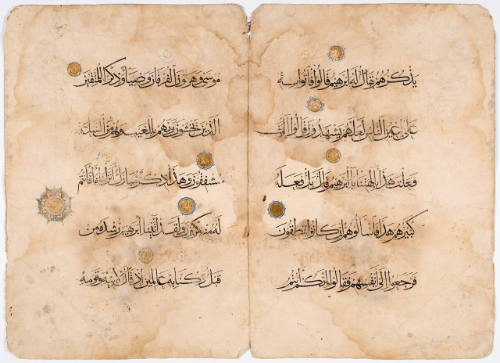 يذكرهم يقال له ابرهيم قالوا فاتوا به
على اعين الناس لعلهم يشهدون قالوا اانت
فعلت هذا بالهتنا يا ابرهيم قال بل فعله
كبيرهم هذا فسئلوهم ان كانوا ينطقون
فرجعوا الى انفسهم فقالوا انكم انتم
موسى وهرون الفرقان وضياء وذكرا للمتقين
الذين يخشون ربهم بالغيب وهم من الساعة
مشفقون وهذا ذكر مبارك انزلناه افانتم
له منكرون ولقد اتينا ابرهيم رشده من
قبل وكنا به عالمين اذ قال لابيه وقومه